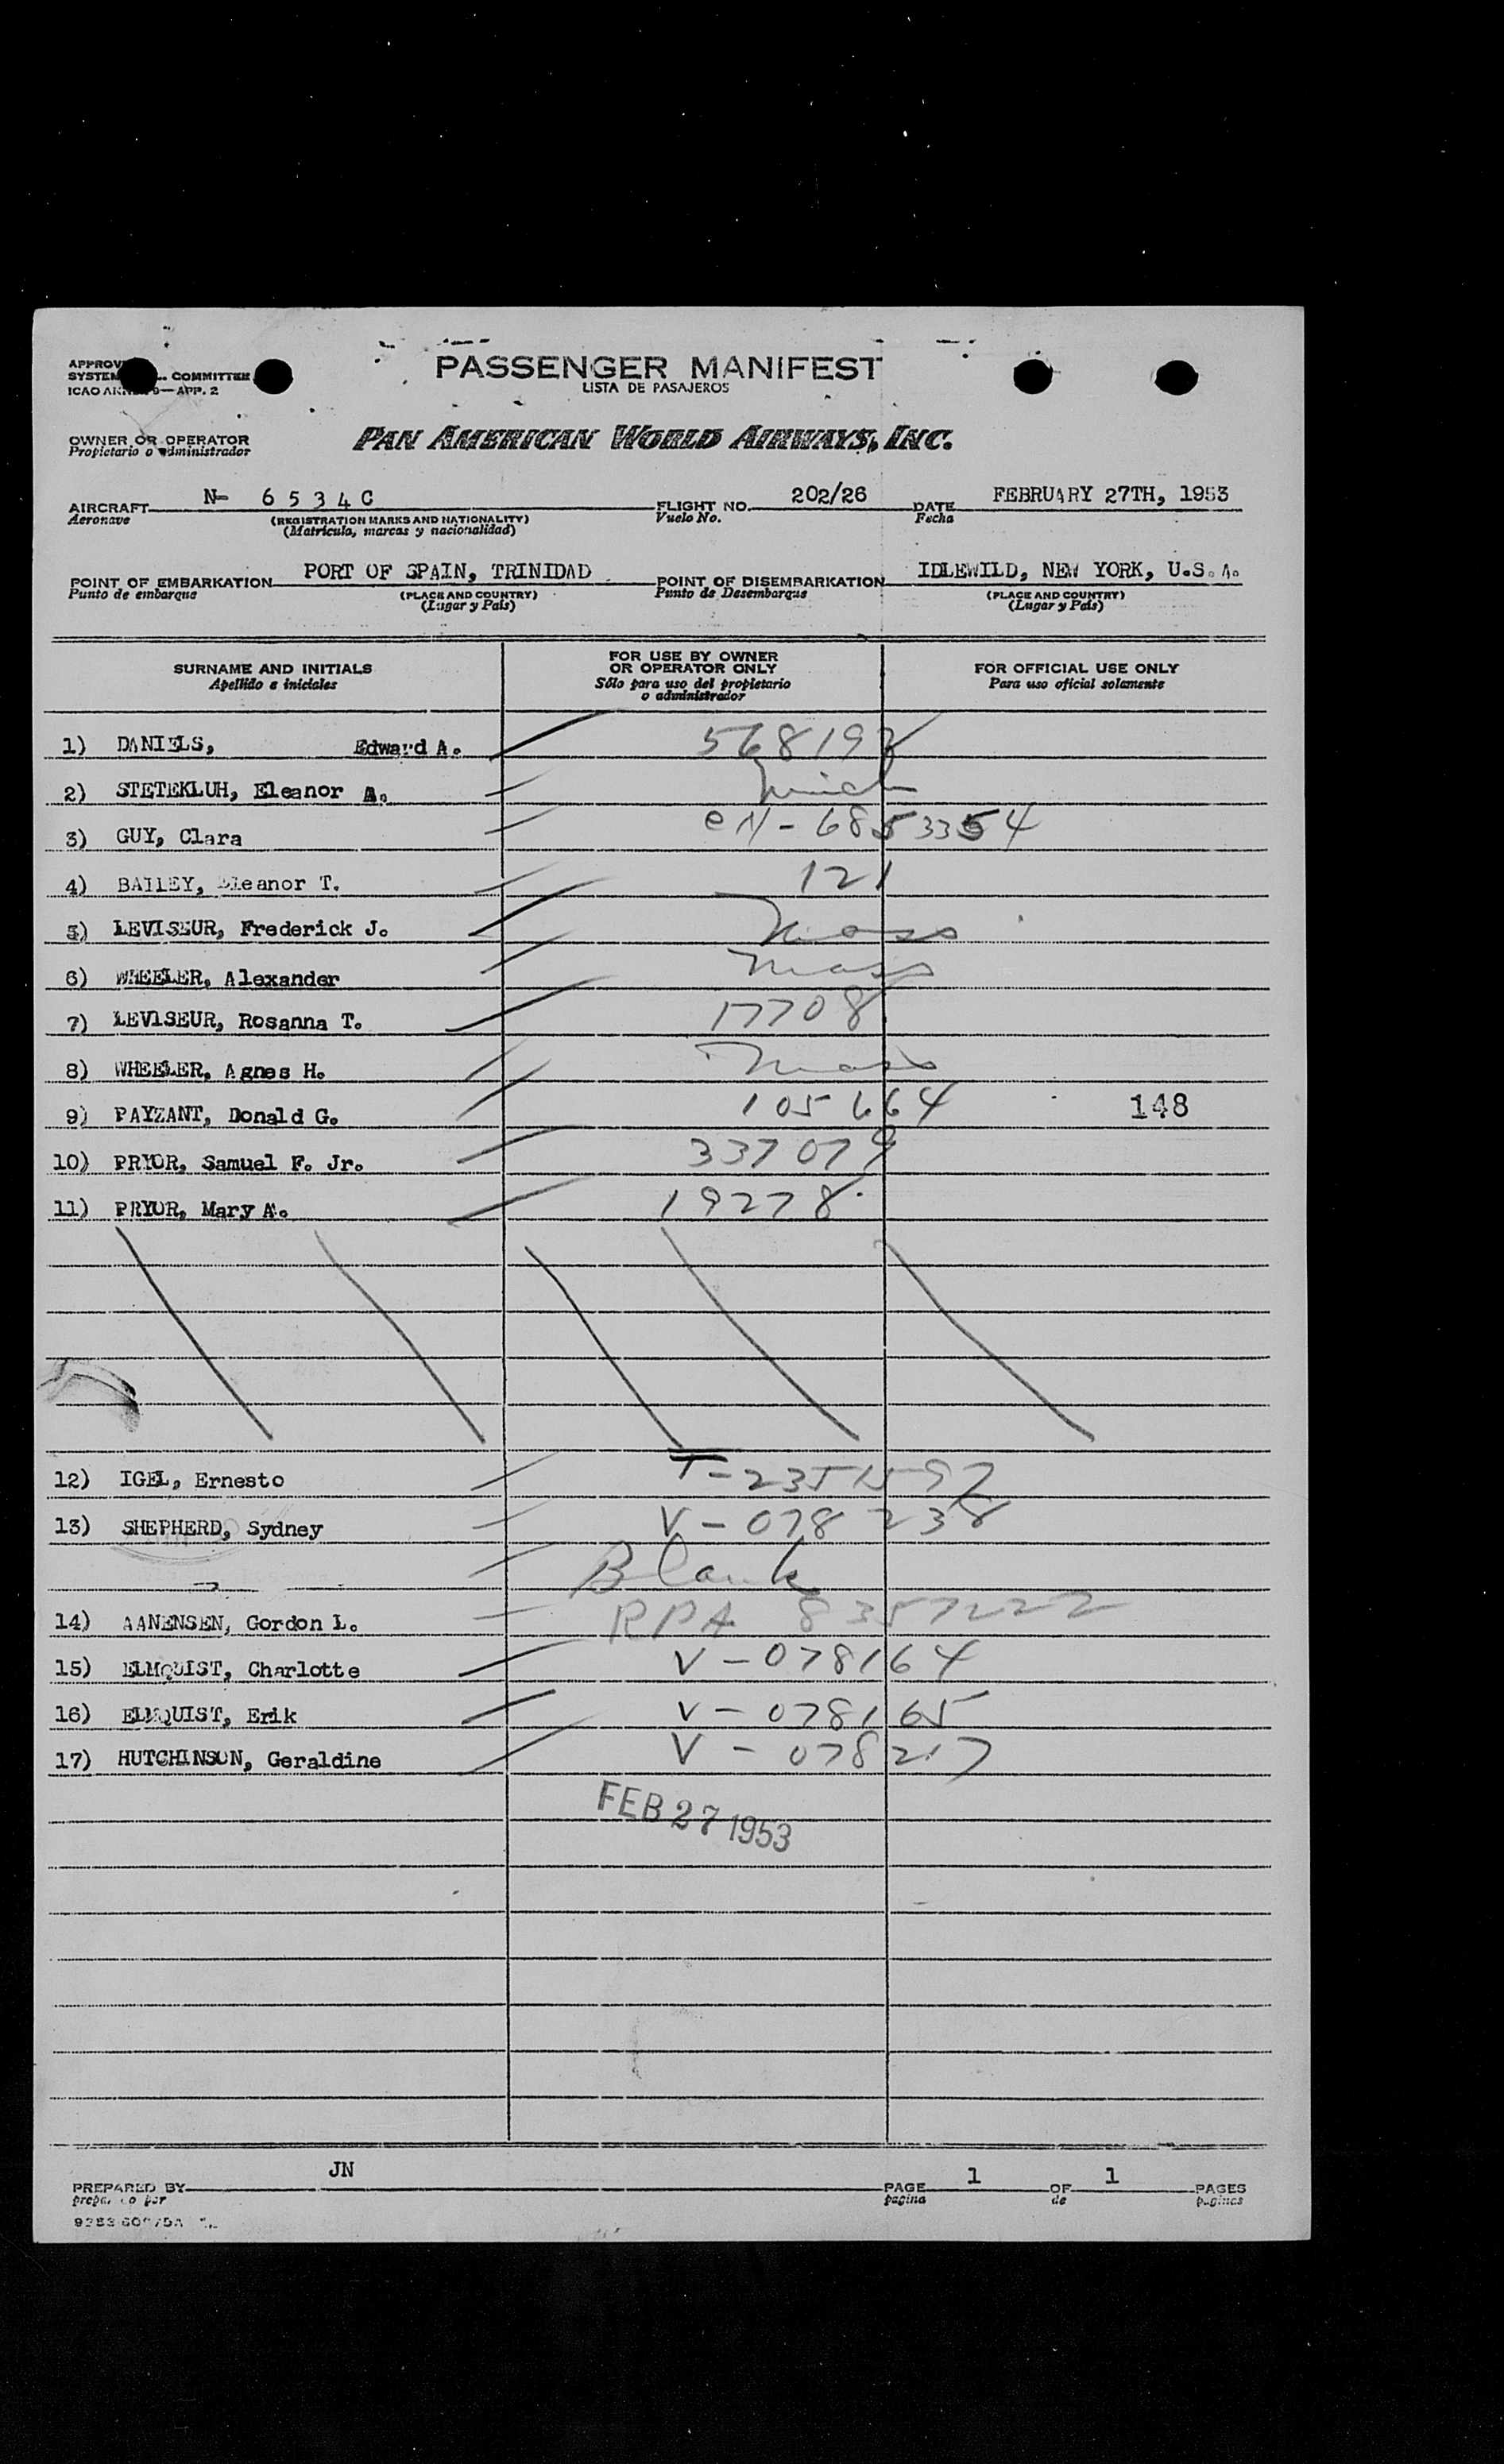 APPROV
SYSTEM COMMITTEE
ICAO 9—APP. 2
PASSENGER MANIFEST
LISTA DE PASAJEROS
OWNER OR OPERATOR
Propietario o administrador
PAN AMERICAN WORLD AIRWAYS, INC.
AIRCRAFT N- 6 5 3 4 C FLIGHT NO. 202/26 DATE FEBRUARY 27TH, 1953
Aeronave (REGISTRATION MARKS AND NATIONALITY) Vuelo No. Fecha
(Matrícula, marcas y nacionalidad)
POINT OF EMBARKATION PORT OF SPAIN, TRINIDAD POINT OF DISEMBARKATION IDLEWILD, NEW YORK, U.S.A.
Punto de embarque (PLACE AND COUNTRY) Punto de Desembarque (PLACE AND COUNTRY)
(Lugar y País) (Lugar y País)
SURNAME AND INITIALS FOR USE BY OWNER OR OPERATOR ONLY FOR OFFICIAL USE ONLY
Apellido e iniciales Sólo para uso del propietario o administrador Para uso oficial solamente
1) DANIELS, Edward A. 568192
2) STETEKLUH, Eleanor A. Mich
3) GUY, Clara CN-6853354
4) BAILEY, Eleanor T. 121
5) LEVISEUR, Frederick J. Mass
6) WHEELER, Alexander Mass
7) LEVISEUR, Rosanna T. 17708
8) WHEELER, Agnes H. Mass
9) PAYZANT, Donald G. 105664 148
10) PRYOR, Samuel F. Jr. 337079
11) PRYOR, Mary A. 19278
12) IGEL, Ernesto T-
13) SHEPHERD, Sydney V-078238
Blank
14) AANENSEN, Gordon L. RPA 8357222
15) ELMQUIST, Charlotte V-078164
16) ELMQUIST, Erik V-078165
17) HUTCHINSON, Geraldine V-078217
FEB 27 1953
JN
PREPARED BY PAGE 1 OF 1 PAGES
por pagina de paginas